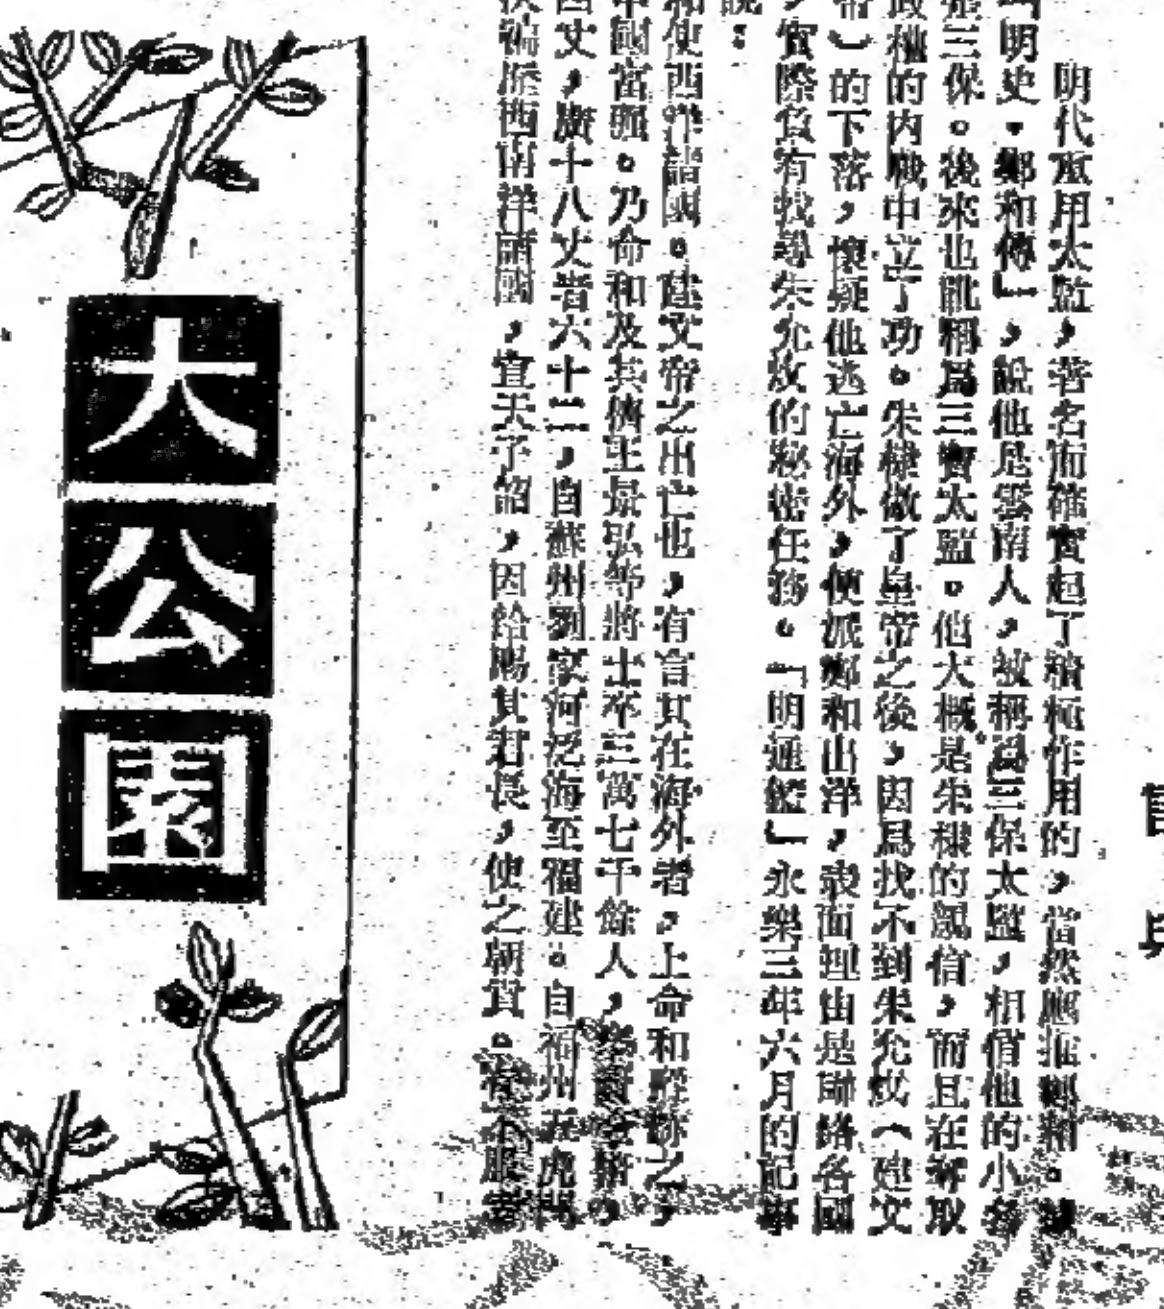 明代重用太監，著名而確實起了積極作用的，當然應推鄭和。據
明史·鄭和傳」，說他是雲南人，被稱爲三保太監，相信他的小名
是三保。後來也訛稱爲三寶太監。他大概是朱棣的親信，而且在奪取
政權的內戰中立了功。朱棣做了皇帝之後，因爲找不到朱允炆（建文
帝）的下落，懷疑他逃亡海外，便派鄭和出洋，表面理由是聯絡各國
，實際負有找尋朱允炆的秘密任務。「明通鑑」永樂三年六月的記事
說：
和使西洋諸國。建文帝之出亡也，有言其在海外者，上命和蹤跡之，
中國富強。乃命和及其儕王景弘等將士卒三萬七千餘人，
四丈，廣十八丈者六十二，自蘇州劉家河泛海至福建。自福州五虎門
次徧歷西南洋諸國，宣天子詔，因給賜其君長，使之朝貢。有不服者
大公園